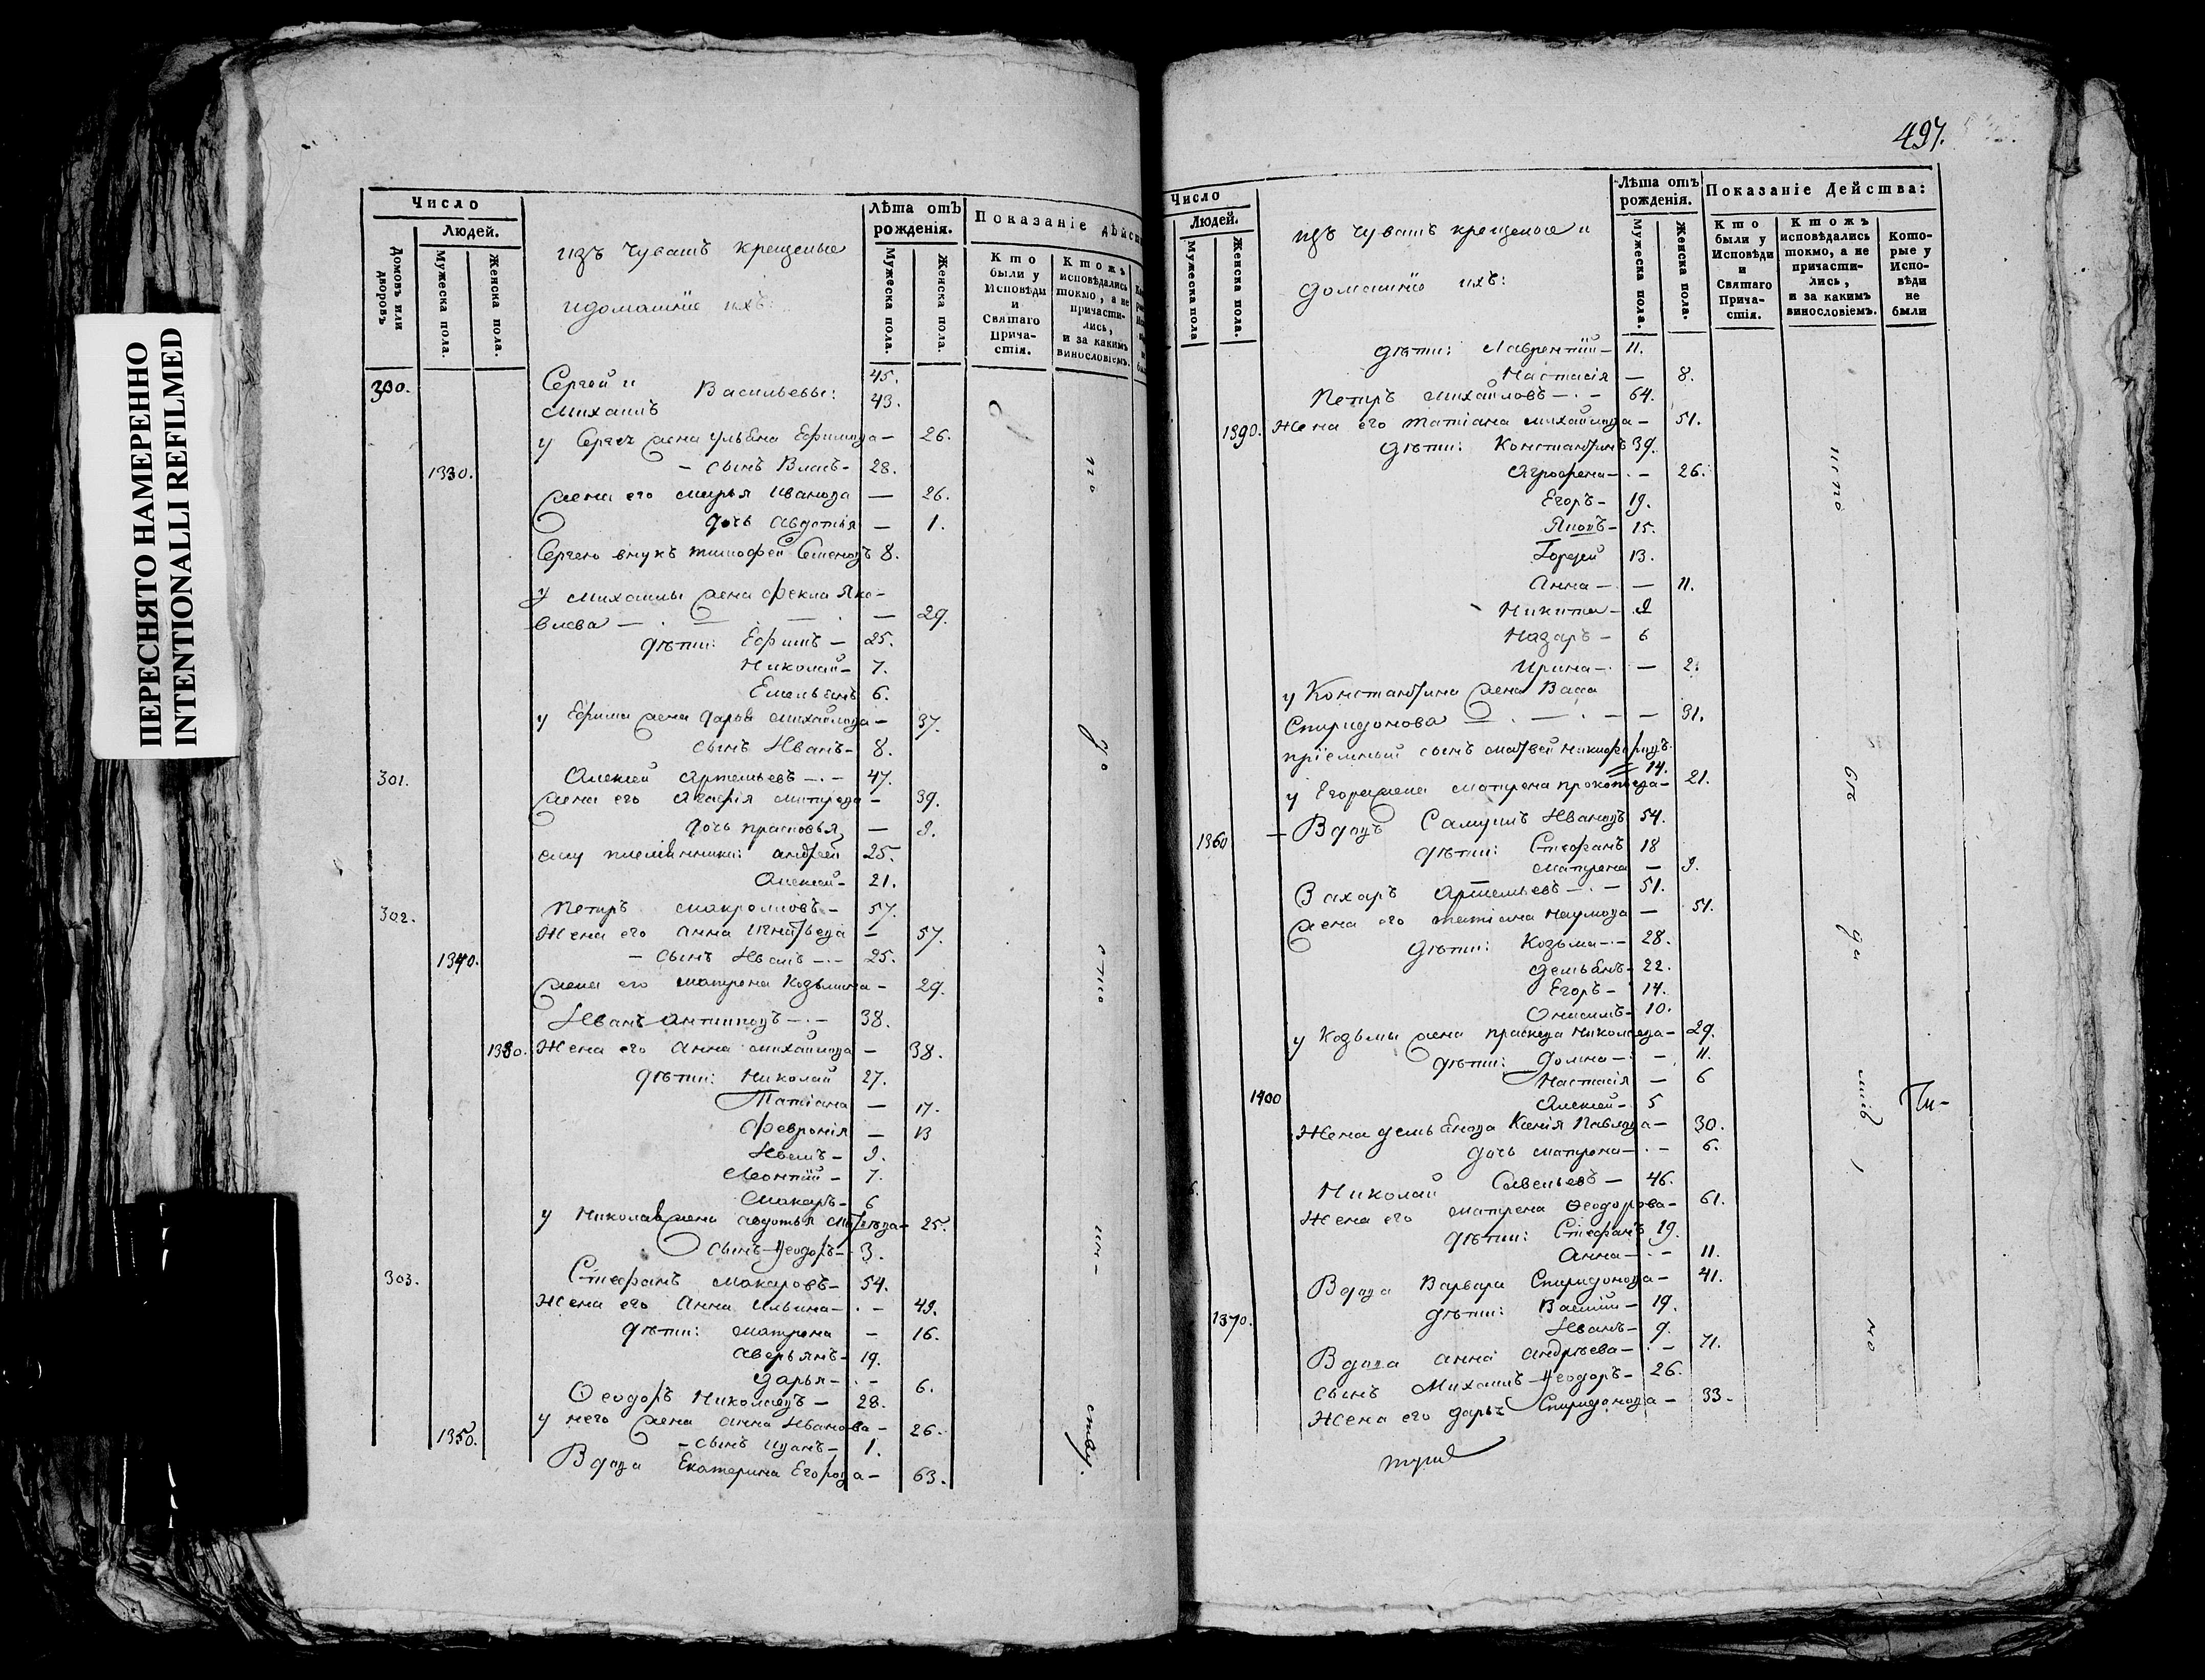 ПЕРЕСНЯТО НАМЕРЕННО
INTENTIONALLI REFILMED
Число
Людей.
Домовъ или дворовъ
Мужеска пола.
Женска пола.
изъ Чувашъ крещеные
идомашніе ихъ:
Лѣта отъ рожденія.
Мужеска пола.
Женска пола.
Показаніе дѣйс
Кто были у Исповѣди и Святаго Прича-стія.
Ктожъ исповѣдались токмо, а не причасти-лись, и за какимъ винословіемъ.
300. Сергей и Васильевы: 45.
Михаилъ 43.
у Сергея жена Ульяна Ефимова — 26.
1330. – сынъ Власъ – 28.
жена его Марья Иванова — 26.
дочь Авдотья — 1.
Сергею внукъ Тимофей Семеновъ 8.
у Михаилы жена Фекла Яко-
влева — 29.
дѣти: Ефимъ – 25.
Николай – 7.
Емельянъ 6.
у Ефима жена Дарья Михайлова – 37.
сынъ Иванъ – 8.
301. Алексей Артемьевъ – 47.
жена его Агафія – 39.
дочь Прасковья — 9.
ему племянники: Андрей 25.
Алексей – 21.
302. Петръ – 57.
Жена его Анна Игнатьева – 57.
1340. – сынъ Иванъ – 25.
жена его Матрена Козьмина – 29.
Иванъ Антиповъ – 38.
1380. Жена его Анна Михайлова – 38.
дѣти: Николай 27.
Татіана — 17.
Февронія — 13
Иванъ – 9.
Леонтій – 7.
Макаръ – 6
у Николая жена Авдотья – 25.
сынъ Ѳеодоръ – 3.
303. Стефанъ Макаровъ – 54.
Жена его Анна Ильина – 49.
дѣти: Матрена – 16.
Аверьянъ – 19.
Дарья – 6.
Ѳеодоръ Николаевъ – 28.
у него жена Анна Иванова – 26.
1350. – сынъ – 1.
Вдова Екатерина Егорова – 63.
497.
Число
Людей.
Мужеска пола
Женска пола.
изъ Чувашъ крещеные и
домашніе ихъ:
Лѣта отъ рожденія.
Мужеска пола.
Женска пола.
Показаніе Действа:
Кто были у Исповѣди и Святаго Прича-стія.
Ктожъ исповѣдались токмо, а не причасти-лись, и за какимъ винословіемъ.
Кото-рые у Испо-вѣди не были
дѣти: Лаврентій – 11.
Настасія — 8.
Петръ Михайловъ – 64.
1390. Жена его Татіана Михайлова – 51.
дѣти: Константинъ 39.
Агрофена – 26.
Егоръ – 19.
– 15.
Гордей 13.
Анна — 11.
Никита – 9
Назаръ – 6
Ирина — 2.
у Константина жена Васа
Спиридонова — 31.
пріемный сынъ Матвей Никифоровъ
14.
у Егора жена Матрена Прокопьева – 21.
1360 Вдовъ Самуилъ Ивановъ 54.
дѣти: Стефанъ 18
Матрена — 9.
Захаръ Артемьевъ – 51.
жена его Татіана Наумова — 51.
дѣти: Козьма – 28.
Демьянъ – 22.
Егоръ – 14.
Онисимъ – 10.
у Козьмы жена Праскева Николаева – 29.
дѣти: Домна – 11.
Настасія — 6
1400 Алексей – 5
Жена Демьянова Ксенія Павлова – 30.
дочь Матрена – 6.
Николай Савельевъ – 46.
Жена его Матрена Ѳеодорова – 61.
дѣти: Стефанъ 19.
Анна – 11.
Вдова Варвара Спиридонова – 41.
1370. дѣти: Василій – 19.
Иванъ – 9.
Вдова Анна Андрѣева – 71.
сынъ Михаилъ Ѳеодоръ – 26.
Жена его Дарья Спиридонова – 33.